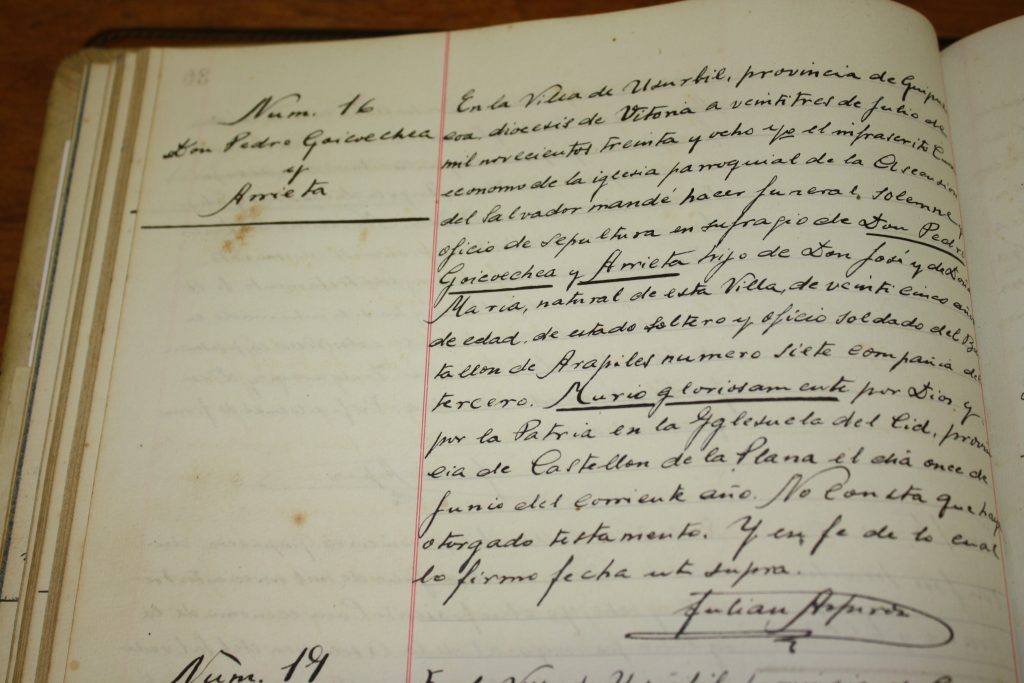 Num. 16
Don Pedro Goicoechea
y
Arrieta
En la Villa de Usurbil, provincia de Guipuz
coa, diocesis de Vitoria a veintitres de Julio de
mil novecientos treinta y ocho yo el infrascrito Cura
economo de la iglesia parroquial de la Ascension
del Salvador mandé hacer funeral, solemne
oficio de sepultura en sufragio de Don Pedro
Goicoechea y Arrieta hijo de Don José y de Doña
Maria, natural de esta Villa, de veinti cinco años
de edad, de estado soltero y oficio soldado del Ba
tallon de Arapiles numero siete compañia del
tercero. Murio gloriosamente por Dios y
por la Patria en la Yglesuela del Cid, provin
cia de Castellon de la Plana el dia once de
Junio del corriente año. No consta que haya
otorgado testamento. Y en fe de lo cual
lo firmo fecha ut supra.
Julian
Núm. 19